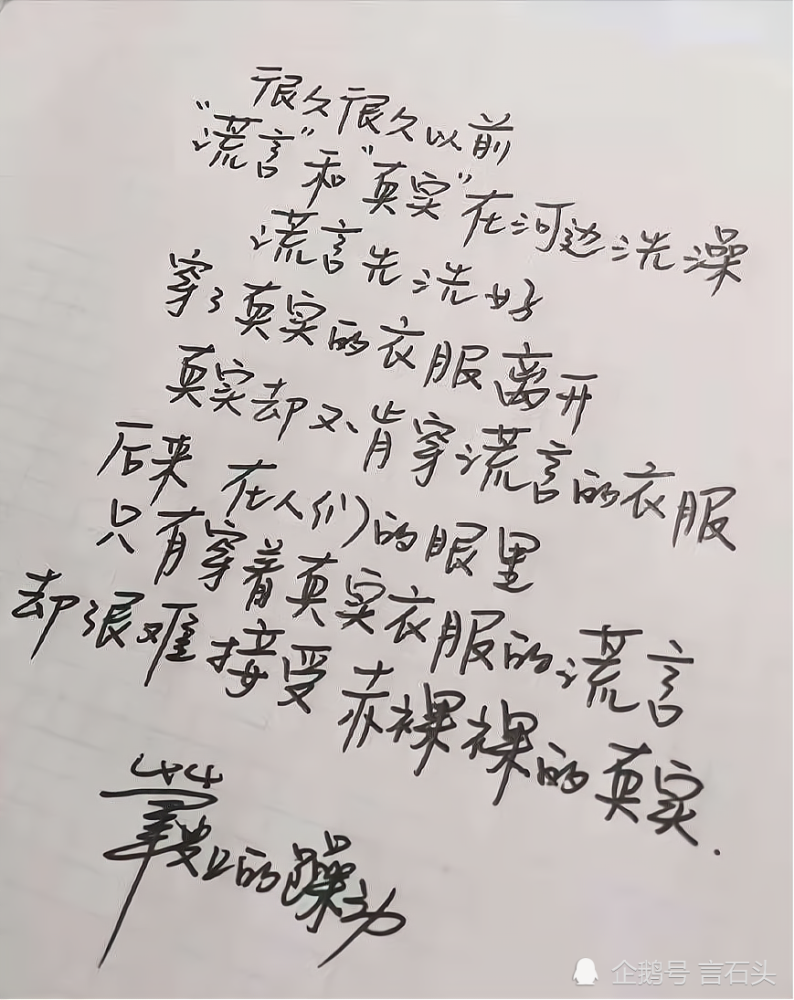 很久很久以前
“谎言”和“真实”在河边洗澡
谎言先洗好
穿了真实的衣服离开
真实却不肯穿谎言的衣服
后来 在人们的眼里
只有穿着真实衣服的谎言
却很难接受赤裸裸的真实.
的躁动
企鹅号 言石头